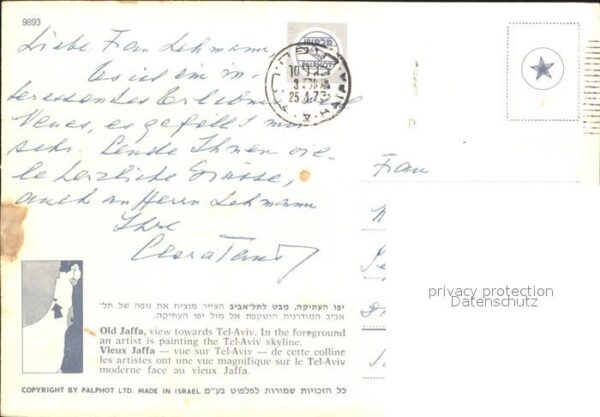 9893
Liebe Frau Lehmann,
Es ist ein in-
teressantes Erlebnis
Neues, es gefällt mir
sehr. Sende Ihnen vie-
le herzliche Grüsse,
auch an Herrn Lehmann
Ihre
Clara
פלפוט
PALPHOT
10
25.4.73
HAIFA
Frau
privacy protection
Datenschutz
יפו העתיקה, מבט לתל־אביב הצייר מנציח את נופה של תל־
אביב המודרנית הנשקפת אל מול יפו העתיקה.
Old Jaffa, view towards Tel-Aviv. In the foreground
an artist is painting the Tel-Aviv skyline.
Vieux Jaffa — vue sur Tel-Aviv — de cette colline
les artistes ont une vue magnifique sur le Tel-Aviv
moderne face au vieux Jaffa.
COPYRIGHT BY PALPHOT LTD. MADE IN ISRAEL כל הזכויות שמורות לפלפוט בע"מ